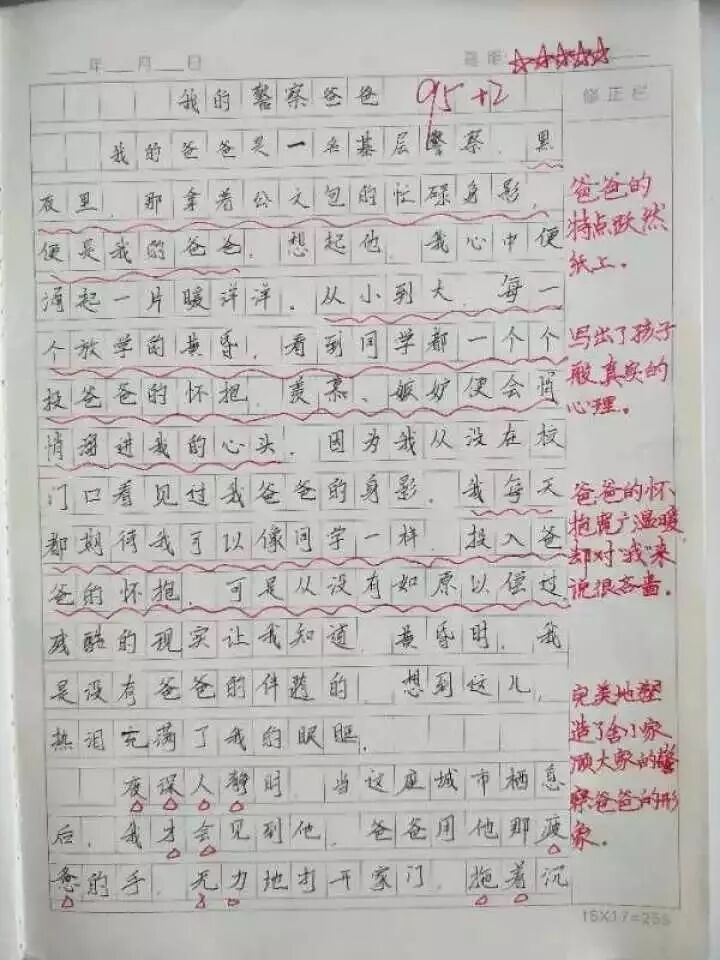 ___年___月___日 星期 ☆☆☆☆☆
我的警察爸爸 95+2 修正栏
我的爸爸是一名基层警察。黑
夜里，那拿着公文包的忙碌身影，
便是我的爸爸。想起他，我心中便
涌起一片暖洋洋。从小到大，每一
个放学的黄昏，看到同学都一个个
投爸爸的怀抱，羡慕、嫉妒便会悄
悄溜进我的心头。因为我从没在校
门口看见过我爸爸的身影。我每天
都期待我可以像同学一样，投入爸
爸的怀抱，可是从没有如愿以偿过。
残酷的现实让我知道，黄昏时，我
是没有爸爸的伴随的。想到这儿，
热泪充满了我的眼眶。
夜深人静时，当这座城市栖息
后，我才会见到他。爸爸用他那疲
惫的手，无力地打开家门，拖着沉
爸爸的
特点跃然
纸上。
写出了孩子
般真实的
心理。
爸爸的怀
抱宽广温暖
却对“我”来
说很吝啬。
完美地塑
造了舍小家
顾大家的警
察爸爸的形
象。
15X17=255